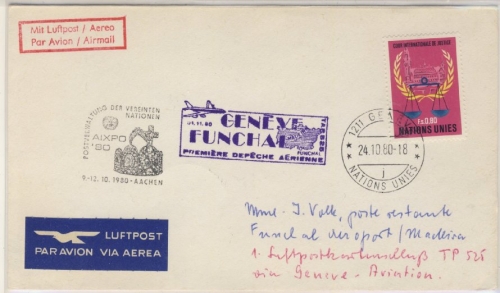 Mit Luftpost / Aereo
Par Avion / Airmail
COUR INTERNATIONALE DE JUSTICE
F.s.0.80
NATIONS UNIES
POSTVERWALTUNG DER VEREINTEN
NATIONEN
AIXPO
'80
9.-12. 10. 1980 - AACHEN
01.11.80
GENÈVE
FUNCHAL
FUNCHAL
PREMIÈRE DEPÊCHE AÉRIENNE
1211
24.10.80-18
j
NATIONS UNIES
LUFTPOST
PAR AVION VIA AEREA
Mme. J. Volk, poste restante
Funchal aeroport / Madeira
1. Luftpost TP 526
via Geneve - Aviation.